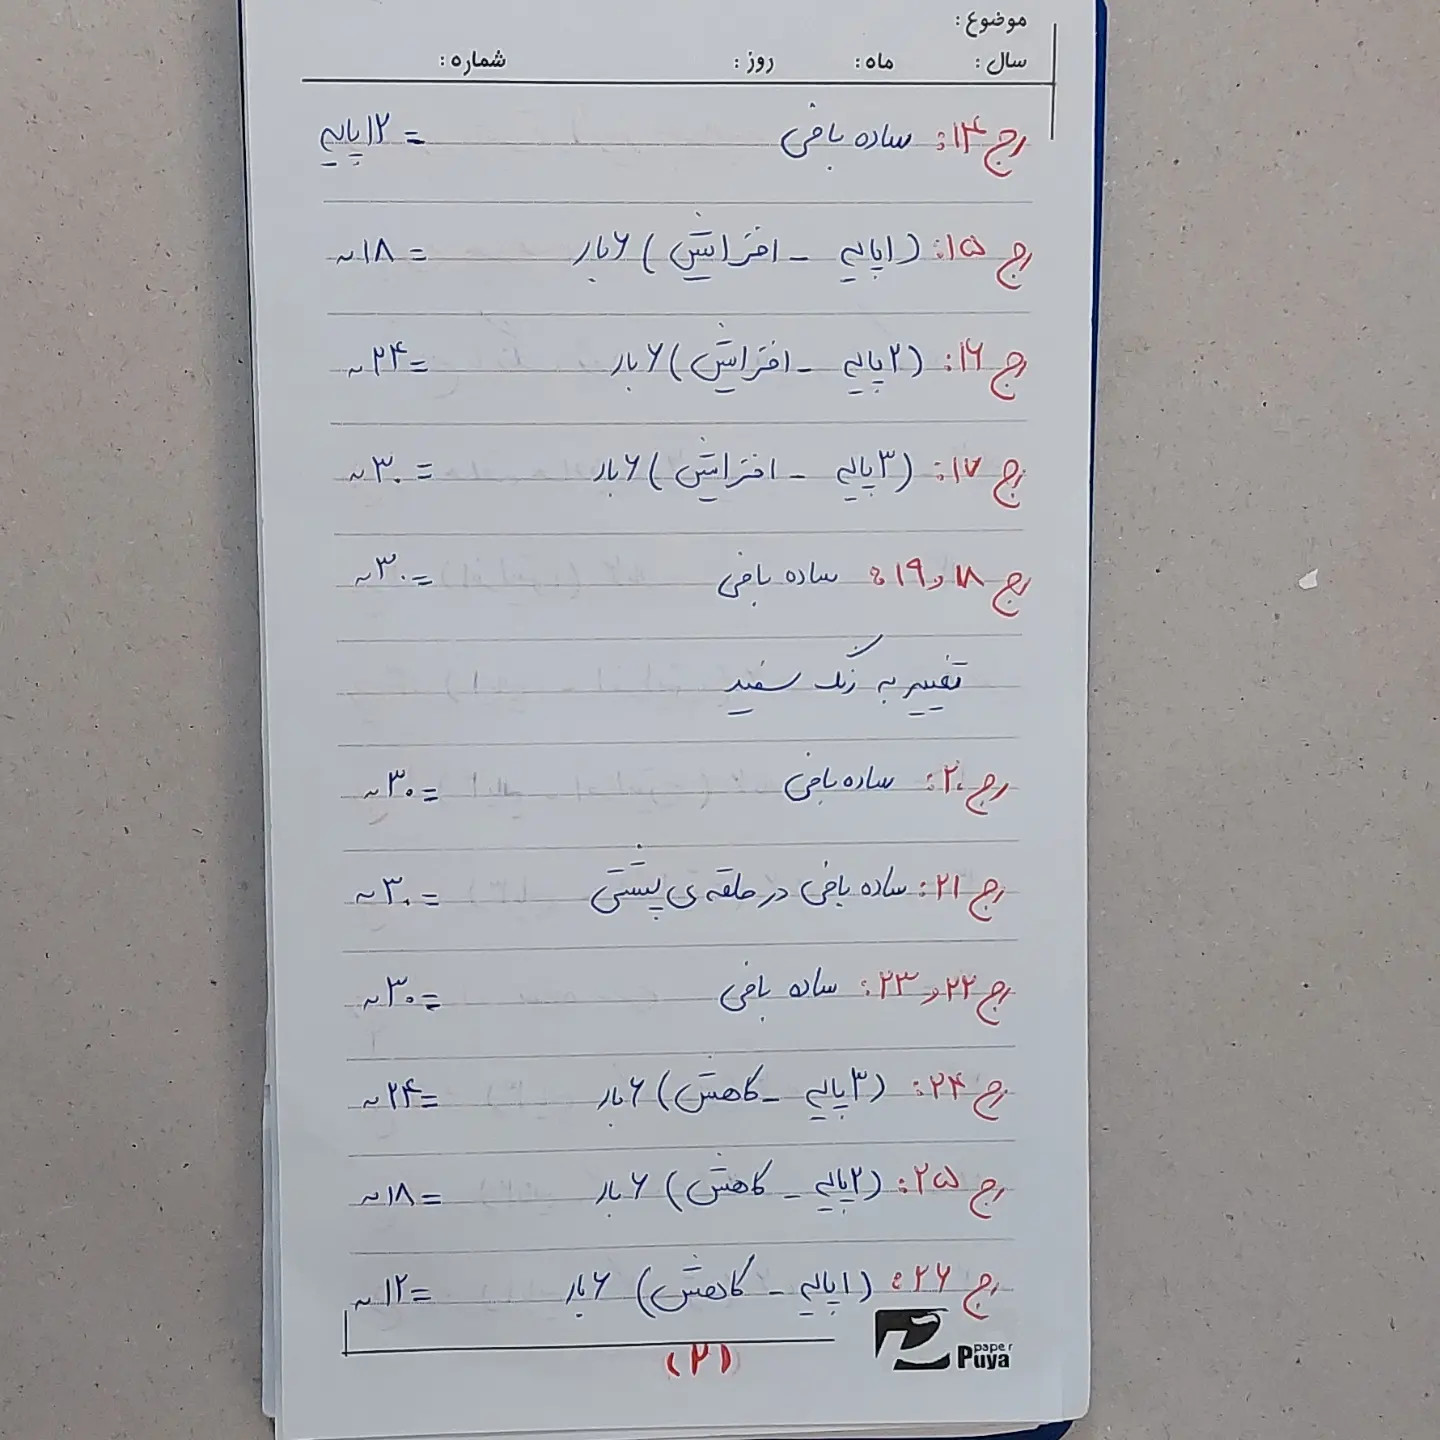 موضوع:
سال: ماه: روز: شماره:
رج ۱۴: ساده بافی = ۱۲ پایه
رج ۱۵: (۱پایه - افزایش) ۶بار = ۱۸~
رج ۱۶: (۲پایه - افزایش) ۶بار = ۲۴~
رج ۱۷: (۳پایه - افزایش) ۶بار = ۳۰~
رج ۱۸ و ۱۹: ساده بافی = ۳۰~
تغییر به رنگ سفید
رج ۲۰: ساده بافی = ۳۰~
رج ۲۱: ساده بافی در حلقه ی پشتی = ۳۰~
رج ۲۲ و ۲۳: ساده بافی = ۳۰~
رج ۲۴: (۳پایه - کاهش) ۶بار = ۲۴~
رج ۲۵: (۲پایه - کاهش) ۶بار = ۱۸~
رج ۲۶: (۱پایه - کاهش) ۶بار = ۱۲~
(۲)
paper
Puya